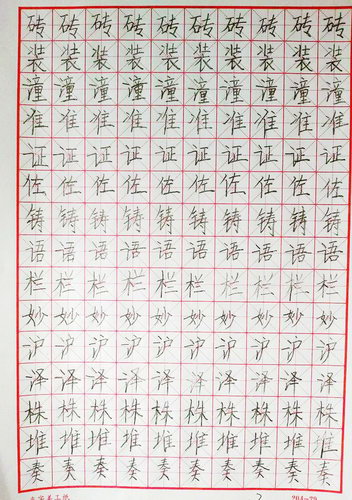 砖砖砖砖砖砖砖砖砖砖
装装装装装装装装装装
潼潼潼潼潼潼潼潼潼潼
准准准准准准准准准准
证证证证证证证证证证
佐佐佐佐佐佐佐佐佐佐
铸铸铸铸铸铸铸铸铸铸
语语语语语语语语语语
栏栏栏栏栏栏栏栏栏栏
妙妙妙妙妙妙妙妙妙妙
沪沪沪沪沪沪沪沪沪沪
泽泽泽泽泽泽泽泽泽泽
株株株株株株株株株株
堆堆堆堆堆堆堆堆堆堆
奏奏奏奏奏奏奏奏奏奏